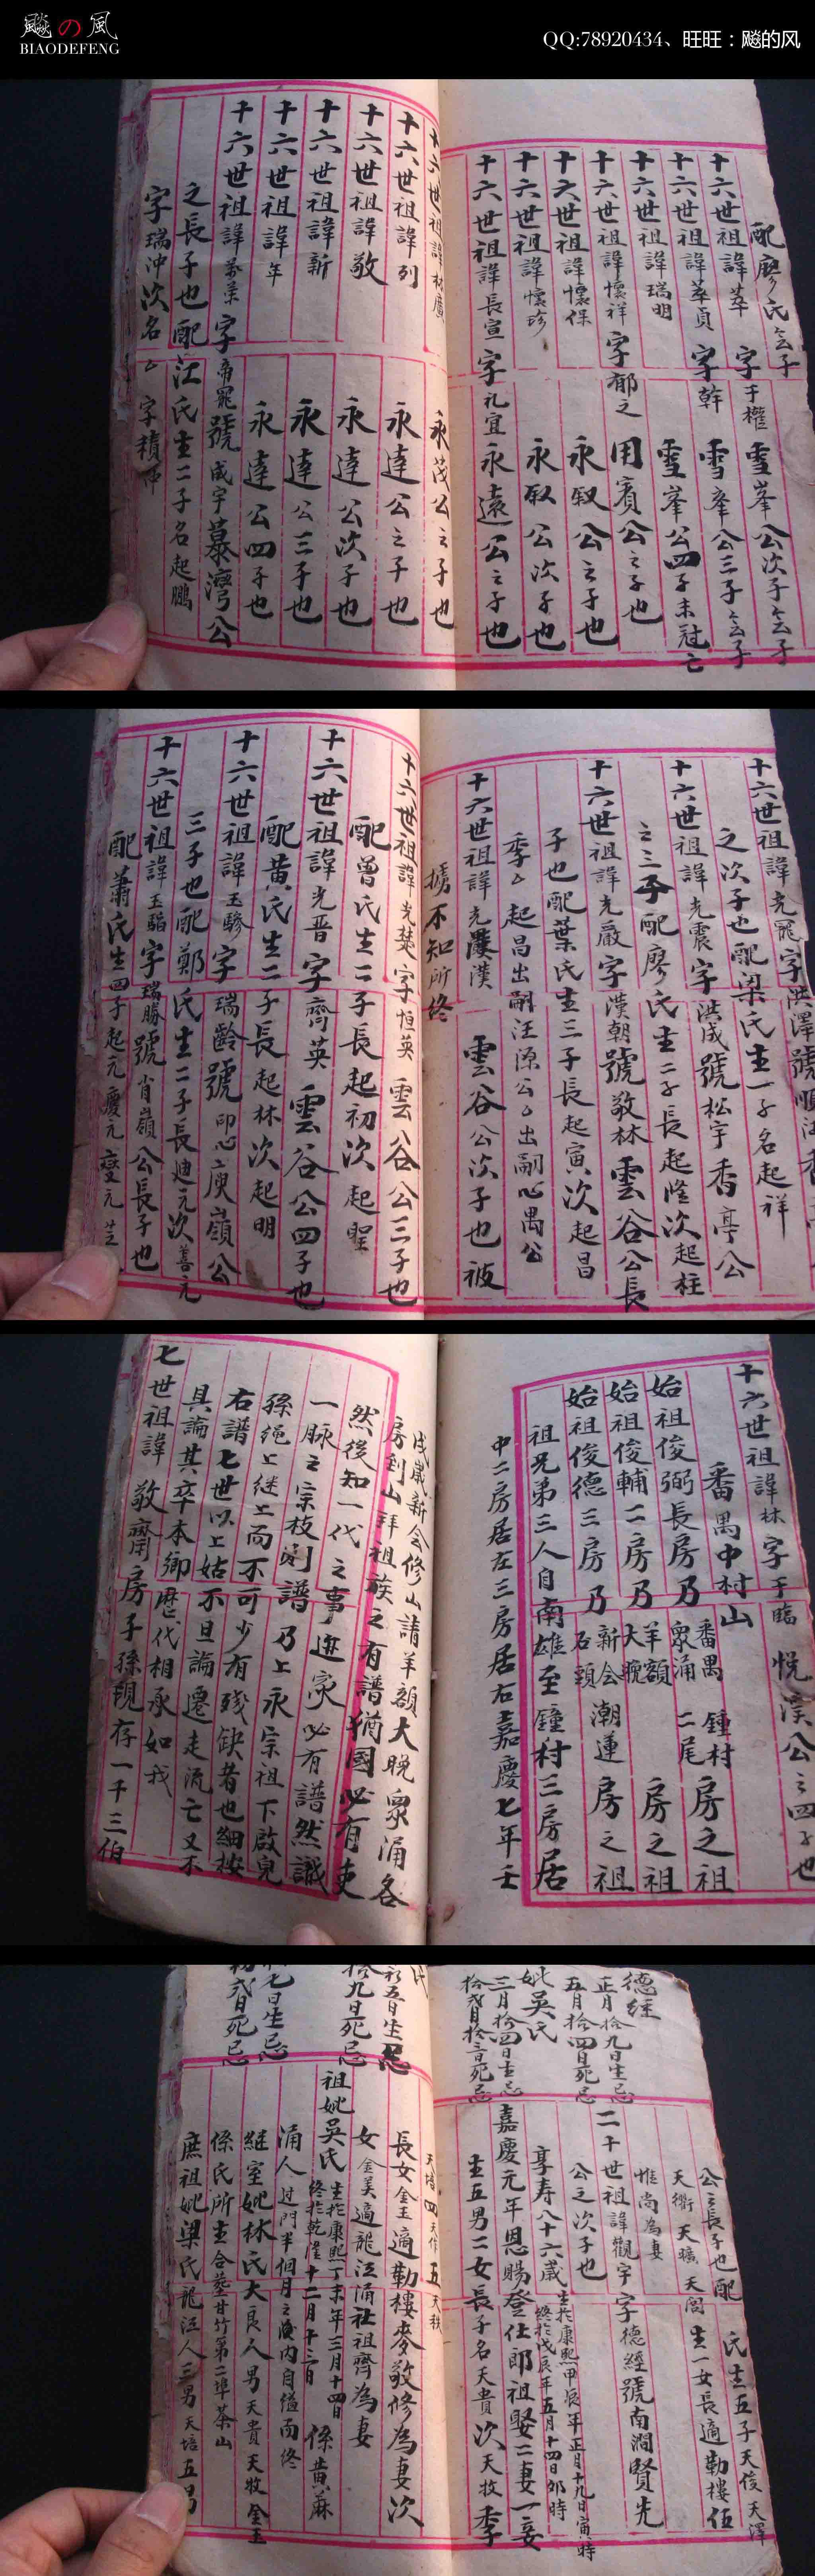 飈の風
BIAODEFENG
QQ:78920434、旺旺：飚的风
配廖氏
十六世祖諱萃 字于權 雪峯公次子
十六世祖諱萃貢 字幹 雪峯公三子
十六世祖諱瑞明 雪峯公四子未冠亡
十六世祖諱懷祥 字郁之 用賓公之子也
十六世祖諱懷保 永殷公之子也
十六世祖諱懷珍 永殷公次子也
十六世祖諱長宣 字礼宜 永遠公之子也
十六世祖諱 永茂公之子也
十六世祖諱列 永達公之子也
十六世祖諱敬 永達公次子也
十六世祖諱新 永達公三子也
十六世祖諱年 永達公四子也
十六世祖諱 字帝寵 號成宇 慕灣公
之長子也配江氏生二子名起鵬
字瑞冲次名 字積冲
十六世祖諱光寵 字洪澤號順
之次子也配梁氏生一子名起祥
十六世祖諱光震 字洪成 號松宇 香亭公
之三子配廖氏生二子長起隆次起柱
十六世祖諱光嚴 字漢朝 號敬林 雲谷公長
子也配葉氏生三子長起寅次起昌
季 起昌出嗣汪源公 出嗣心禺公
十六世祖諱光漢 雲谷公次子也被
擄不知所終
十六世祖諱光楚 字恒英 雲谷公三子也
配曾氏生二子長起初次起聖
十六世祖諱光晋 字齊英 雲谷公四子也
配黃氏生二子長起林次起明
十六世祖諱玉驂 字瑞齡 號印心 庾嶺公
三子也配鄭氏生二子長廸元次善元
十六世祖諱玉 字瑞勝 號肖嶺 公長子也
配蕭氏生四子起元慶元變元芝
十六世祖諱林 字于臨 悦溪公之四子也
番禺中村山
始祖俊弼長房乃 番禺衆涌 鍾村二尾 房之祖
始祖俊輔二房乃 羊額大晚 房之祖
始祖俊德三房乃 新会石頭 潮蓮 房之祖
祖兄弟三人自南雄至鐘村三房居
中二房居左三房居右嘉慶七年壬
戌歲新会修山請羊額大晚衆涌各
房到山拜祖族之有譜猶國必有吏
然後知一代之事 家必有譜然識
一脉之宗枝 譜乃上永宗祖下啟兒
孫绳上继上而不可少有残缺者也細按
右譜七世以上姑不旦論遷走流亡又不
具論其卒本鄉歷代相承如我
七世祖諱敬齋房子孫現存一千三伯
德經
正月拾九日生忌
五月拾四日死忌
妣吳氏
三月拾四日生忌
拾弍月拾三日死忌
公之長子也配 氏生五子天俊天澤
天衢天曠天閣 生一女長適勒樓伍
惟尚為妻
二十世祖諱觀宇字德經號南澗賢先
公之次子也 生扵康熙甲辰年正月十九日寅時
享寿八十六歲 終於戊辰年五月十四日卯時
嘉慶元年恩賜登仕郎祖娶二妻一妾
生五男二女長子名天貴次天牧季
天培四天作五天秩
長女金玉適勒樓麥敬修為妻次
女金美適龍江涌社祖齊為妻
祖妣吳氏 生扵康熙丁未年三月十四日 終扵乾隆十二月十三日 係黃麻
涌人过門半個月之後内自缢而終
継室妣林氏大良人男天貴天牧金玉
係氏所生合塟甘竹第二埠茶山
庶祖妣梁氏龍江人三男天培五男